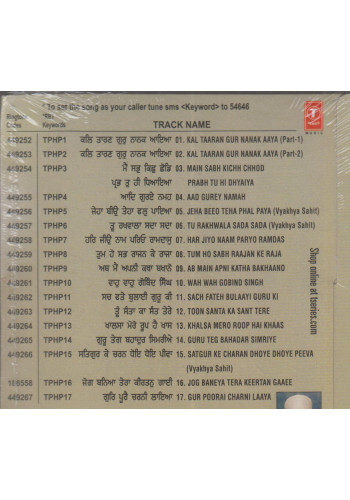 * To set the song as your caller tune sms <Keyword> to 54646
Ringtone Codes TSR Keywords TRACK NAME
T
MUSIC
449252 TPHP1 ਕਲਿ ਤਾਰਣ ਗੁਰੂ ਨਾਨਕ ਆਇਆ 01. KAL TAARAN GUR NANAK AAYA (Part-1)
449253 TPHP2 ਕਲਿ ਤਾਰਣ ਗੁਰੂ ਨਾਨਕ ਆਇਆ 02. KAL TAARAN GUR NANAK AAYA (Part-2)
449254 TPHP3 ਮੈਂ ਸਭੁ ਕਿਛੁ ਛੋਡਿ 03. MAIN SABH KICHH CHHOD
ਪ੍ਰਭ ਤੁ ਹੀ ਧਿਆਇਆ PRABH TU HI DHYAIYA
449255 TPHP4 ਆਦਿ ਗੁਰਏ ਨਮਹ 04. AAD GUREY NAMAH
449256 TPHP5 ਜੇਹਾ ਬੀਓ ਤੇਹਾ ਫਲੁ ਪਾਇਆ 05. JEHA BEEO TEHA PHAL PAYA (Vyakhya Sahit)
449257 TPHP6 ਤੂ ਰਖਵਾਲਾ ਸਦਾ ਸਦਾ 06. TU RAKHWALA SADA SADA (Vyakhya Sahit)
449258 TPHP7 ਹਰਿ ਜੀਓ ਨਾਮ ਪਰਿਓ ਰਾਮਦਾਸੁ 07. HAR JIYO NAAM PARYO RAMDAS
449259 TPHP8 ਤੁਮ ਹੋ ਸਭ ਰਾਜਨ ਕੇ ਰਾਜਾ 08. TUM HO SABH RAAJAN KE RAJA
449260 TPHP9 ਅਬ ਮੈਂ ਅਪਨੀ ਕਥਾ ਬਖਾਨੋ 09. AB MAIN APNI KATHA BAKHAANO
449261 TPHP10 ਵਾਹੁ ਵਾਹੁ ਗੋਬਿੰਦ ਸਿੰਘ 10. WAH WAH GOBIND SINGH
449262 TPHP11 ਸਚ ਫਤੇ ਬੁਲਾਈ ਗੁਰੂ ਕੀ 11. SACH FATEH BULAAYI GURU KI
449263 TPHP12 ਤੂੰ ਸੰਤਾ ਕਾ ਸੰਤ ਤੇਰੇ 12. TOON SANTA KA SANT TERE
449264 TPHP13 ਖਾਲਸਾ ਮੇਰੋ ਰੂਪ ਹੈ ਖਾਸ 13. KHALSA MERO ROOP HAI KHAAS
449265 TPHP14 ਗੁਰੂ ਤੇਗ ਬਹਾਦੁਰ ਸਿਮਰੀਐ 14. GURU TEG BAHADAR SIMRIYE
449266 TPHP15 ਸਤਿਗੁਰ ਕੇ ਚਰਨ ਧੋਇ ਧੋਇ ਪੀਵਾ 15. SATGUR KE CHARAN DHOYE DHOYE PEEVA
(Vyakhya Sahit)
186558 TPHP16 ਜੋਗ ਬਨਿਆ ਤੇਰਾ ਕੀਰਤਨੁ ਗਾਈ 16. JOG BANEYA TERA KEERTAN GAAEE
449267 TPHP17 ਗੁਰਿ ਪੂਰੈ ਚਰਨੀ ਲਾਇਆ 17. GUR POORAI CHARNI LAAYA
Shop online at tseries.com